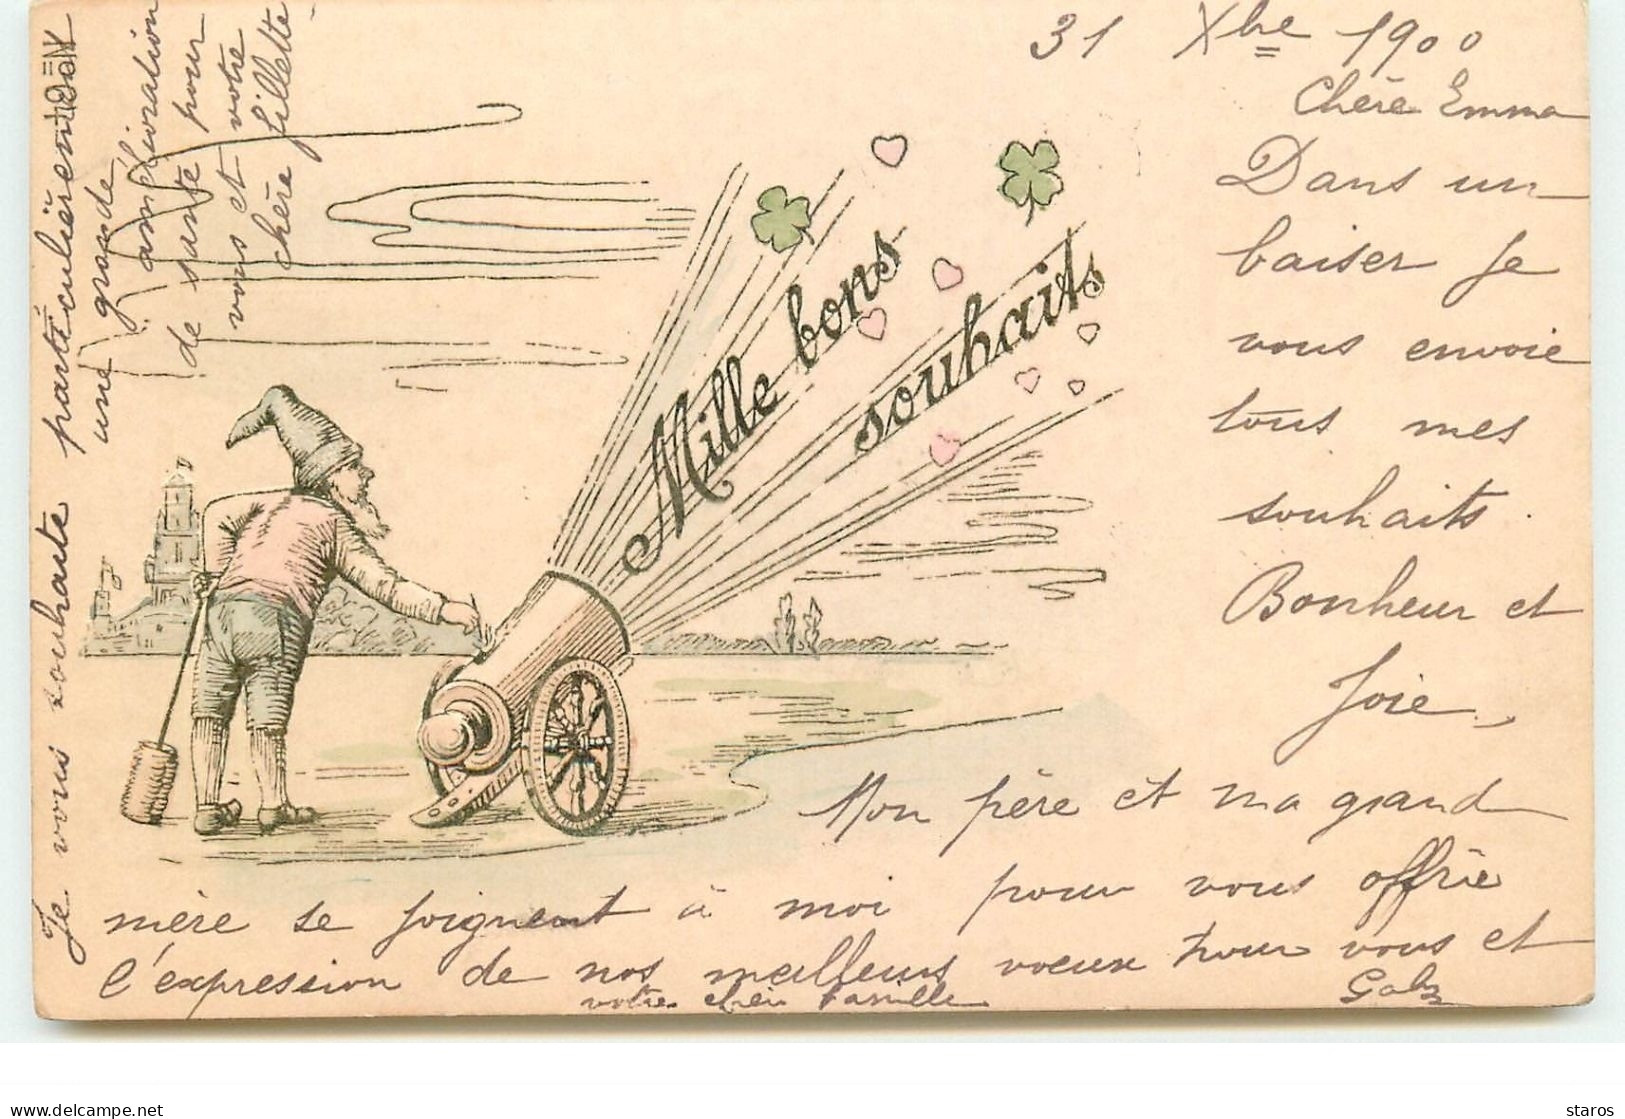 31 Xbre 1900
Chère Emma
Dans un
baiser je
vous envoie
tous mes
souhaits.
Bonheur et
Joie.
Mon père et ma grand
mère se joignent à moi pour vous offrir
l'expression de nos meilleurs voeux pour vous et
votre famille
Je vous souhaite particulièrement
une grande
amélioration
de santé pour
vous et votre
chère fillette
Mille bons
souhaits
staros